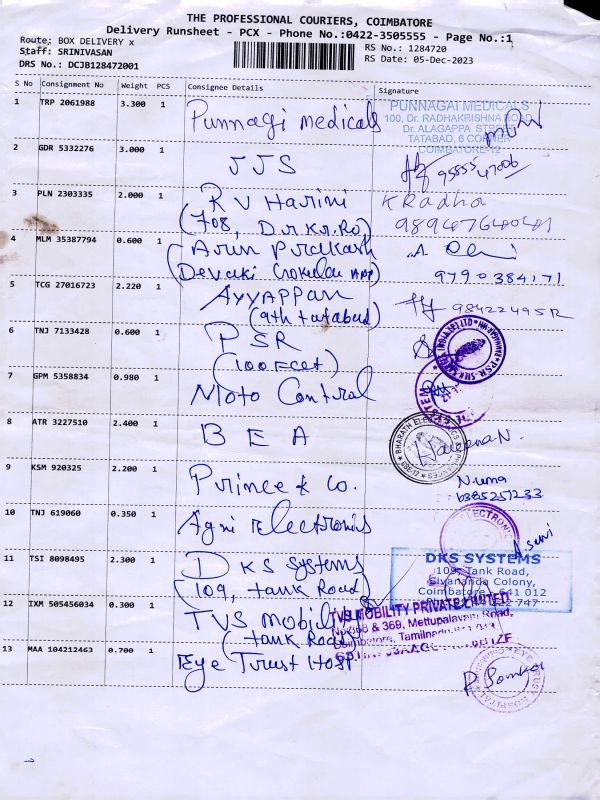 THE PROFESSIONAL COURIERS, COIMBATORE
Delivery Runsheet - PCX - Phone No.:0422-3505555 - Page No.:1
Route: BOX DELIVERY x
RS No.: 1284720
Staff: SRINIVASAN
RS Date: 05-Dec-2023
DRS No.: DCJB128472001
S No Consignment No Weight PCS Consignee Details Signature
1 TRP 2061988 3.300 1 Punnagi medicals
PUNNAGAI MEDICALS
100, Dr. RADHAKRISHNA ROAD
Dr. ALAGAPPA STREET
TATABAD, 6 CORNER
COIMBATORE-12
2 GDR 5332276 3.000 1 JJS
3 PLN 2303335 2.000 1 RV Harini K Radha
(708, D.r.Kr.Ro)
4 MLM 35387794 0.600 1 (Arun Prakash
Devaki Gokulam APP) 9790384171
5 TCG 27016723 2.220 1 Ayyappan
(9th tatabad)
6 TNJ 7133428 0.600 1 PSR
(100 Feet)
7 GPM 5358834 0.980 1 Moto Control
8 ATR 3227510 2.400 1 BEA
BHARATH ELECTRONICS
9 KSM 920325 2.200 1 Prince & Co. N.uma
6385251233
10 TNJ 619060 0.350 1 Agni Electronics
ELECTRONICS
11 TSI 8098495 2.300 1 DKS Systems
(109, tank Road)
DKS SYSTEMS
109, Tank Road,
Sivananda Colony,
Coimbatore - 641 012
12 IXM 505456034 0.300 1 TVS mobility
(tank Road)
TVS MOBILITY PRIVATE LIMITED
& 369, Mettupalayam Road,
Coimbatore, Tamilnadu
13 MAA 104212463 0.700 1 Eye Trust Hosp.